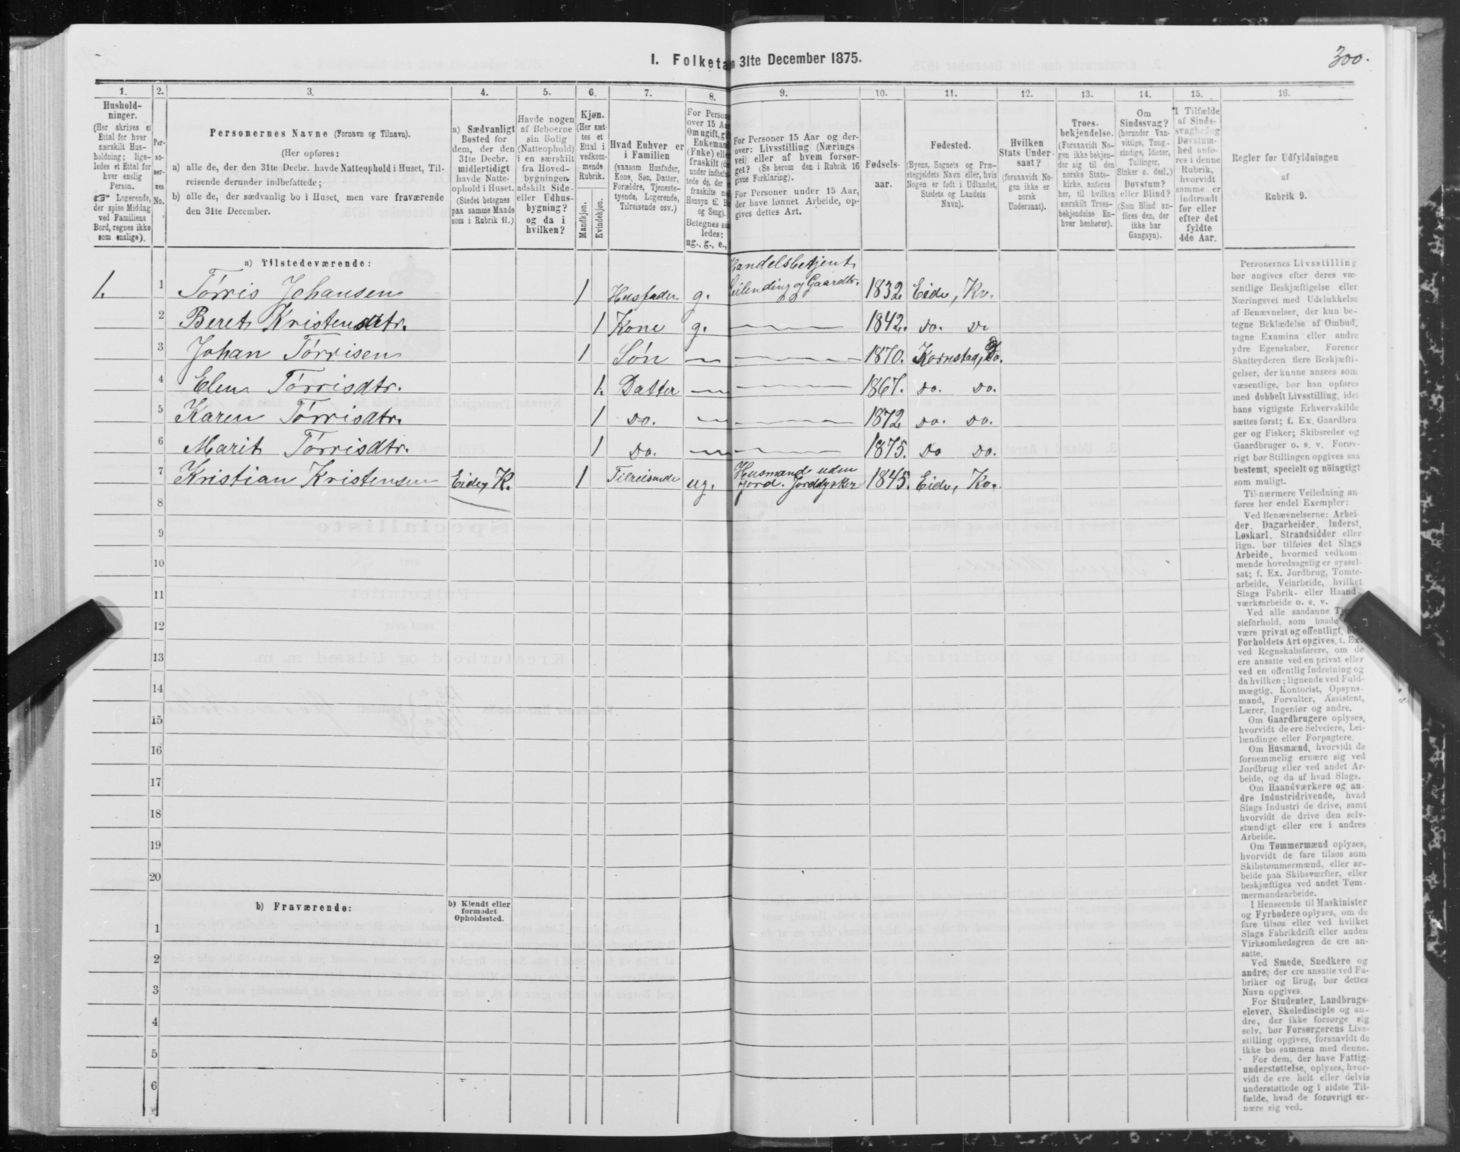 I. Folketa
m 31te December 1875.
300.
1. 2. 3. 4. 5. 6. 7. 8. 9. 10. 11. 12. 13. 14. 15. 16.
Hushold-
ninger.
(Her skrives et
Ettal for hver
særskilt Hus-
holdning; lige-
ledes et Ettal for
hver enslig
Person.
Logerende,
der spise Middag
ved Familiens
Bord, regnes ikke
som enslige).
Per-
so-
ner-
nes
No.
Personernes Navne (Fornavn og Tilnavn).
(Her opføres:
a) alle de, der den 31te Decbr. havde Natteophold i Huset, Til-
reisende derunder indbefattede;
b) alle de, der sædvanlig bo i Huset, men vare fraværende
den 31te December.
a) Sædvanligt
Bosted for
dem, der den
31te Decbr.
midlertidigt
havde Natte-
ophold i Huset.
(Stedet betegnes
paa samme Maade
som i Rubrik 11.)
Havde nogen
af Beboerne
sin Bolig
(Natteophold)
i en særskilt
fra Hoved-
bygningen
adskilt Side-
eller Udhus-
bygning?
og da i
hvilken?
Kjøn.
(Her sæt-
tes et
Ettal i
vedkom-
mende
Rubrik.
Mandkjøn.
Kvindekjøn.
Hvad Enhver er
i Familien
(saasom Husfader,
Kone, Søn, Datter,
Forældre, Tjeneste-
tyende, Logerende,
Tilreisende osv.)
For Person
over 15 Aa
Om ugift, gi
Enkemand
(Enke) elle
fraskilt
Betegnes saa-
ledes:
ug., g., e.,
For Personer 15 Aar og der-
over: Livsstilling (Nærings
vei) eller af hvem forsør-
get? (Se herom den i Rubrik 16
givne Forklaring).
For Personer under 15 Aar,
der have lønnet Arbeide, op-
gives dettes Art.
Fødsels-
aar.
Fødested.
(Byens, Sognets og Præ-
stegjeldets Navn eller, hvis
Nogen er født i Udlandet,
Stedets og Landets
Navn).
Hvilken
Stats Under-
saat?
(forsaavidt No-
gen ikke er
norsk
Undersaat).
Troes-
bekjendelse.
(Forsaavidt No-
gen ikke bekjen-
der sig til den
norske Stats-
kirke, anføres
her, til hvilken
særskilt Troes-
bekjendelse En-
hver henhører).
Om
Sindssvag?
(herunder Van-
vittige, Tung-
sindige, Idioter,
Tullinger,
Sinker o. desl.).
Døvstum?
eller Blind?
(Som Blind an-
føres den, der
ikke har
Gangsyn).
I Tilfælde
af Sinds-
svaghed og
Døvstum-
hed anfø-
res i denne
Rubrik,
hvorvidt
samme er
indtraadt
før eller
efter det
fyldte
4de Aar.
Regler før Udfyldningen
af
Rubrik 9.
a) Tilstedeværende:
1. 1 Tørris Johansen 1 Husfader g. Handelsbetjent, Leilending og Gaardbr. 1832 Eide, Kv.
2 Beret Kristensdtr. 1 Kone g. 1842. do. do
3 Johan Tørrisen 1 Søn 1870. Kornstad, Do.
4 Elen Tørrisdtr. 1. Datter 1867. do. do.
5 Karen Tørrisdtr. 1 do. 1872 do. do.
6 Marit Tørrisdtr. 1 Do. 1875. do do.
7 Kristian Kristensen Eide, K. 1 Tilreisende ug. Husmand uden Jord. Jorddyrker 1845. Eide, Kv.
8
9
10
11
12
13
14
15
16
17
18
19
20
b) Fraværende:
b) Kjendt eller
formodet
Opholdssted.
1
2
3
4
5
6
Personernes Livsstilling
bør angives efter deres væ-
sentlige Beskjæftigelse eller
Næringsvei med Udelukkelse
af Benævnelser, der kun be-
tegne Beklædelse af Ombud,
tagne Examina eller andre
ydre Egenskaber. Forener
Skatteyderen flere Beskjæfti-
gelser, der kunne ansees som
væsentlige, bør han opføres
med dobbelt Livsstilling, idet
hans vigtigste Erhvervskilde
sættes først; f. Ex. Gaardbru
ger og Fisker; Skibsreder og
Gaardbruger o. s. v. Forøv-
rigt bør Stillingen opgives saa
bestemt, specielt og nøiagtigt
som muligt.
Til nærmere Veiledning an-
føres her endel Exempler:
Ved Benævnelserne: Arbei-
der, Dagarbeider, Inderst,
Løskarl, Strandsidder eller
lign. bør tilføies det Slags
Arbeide, hvormed vedkom-
mende hovedsagelig er syssel-
sat; f. Ex. Jordbrug, Tomte-
arbeide, Veiarbeide, hvilket
Slags Fabrik- eller Haand-
værksarbeide o. s. v.
Ved alle saadanne
sieforhold, som baade
være privat og offentligt,
Forholdets Art opgives, t. Ex.
ved Regnskabsførere, om de
ere ansatte ved en privat eller
ved en offentlig Indretning og
da hvilken; lignende ved Fuld-
mægtig, Kontorist, Opsyns-
mand, Forvalter, Assistent,
Lærer, Ingeniør og andre.
Om Gaardbrugere oplyses,
hvorvidt de ere Selveiere, Lei-
lændinge eller Forpagtere.
Om Husmænd, hvorvidt de
fornemmelig ernære sig ved
Jordbrug eller ved andet Ar-
beide, og da af hvad Slags.
Om Haandværkere og an-
dre Industridrivende, hvad
Slags Industri de drive, samt
hvorvidt de drive den selv-
stændigt eller ere i andres
Arbeide.
Om Tømmermænd oplyses,
hvorvidt de fare tilsøs som
Skibstømmermænd, eller ar-
beide paa Skibsværfter, eller
beskjæftiges ved andet Tøm-
mermandsarbeide.
I Henseende til Maskinister
og Fyrbødere oplyses, om de
fare tilsøs eller ved hvilket
Slags Fabrikdrift eller anden
Virksomhedsgren de ere an-
satte.
Ved Smede, Snedkere og
andre, der ere ansatte ved Fa-
briker og Brug, bør dettes
Navn opgives.
For Studenter, Landbrugs-
elever, Skoledisciple og an-
dre, der ikke forsørge sig
selv, bør Forsørgerens Livs-
stilling opgives, forsaavidt de
ikke bo sammen med denne.
For dem, der have Fattig-
understøttelse, oplyses, hvor-
vidt de ere helt eller delvis
understøttede og i sidste Til-
fælde, hvad de forøvrigt er-
nære sig ved.